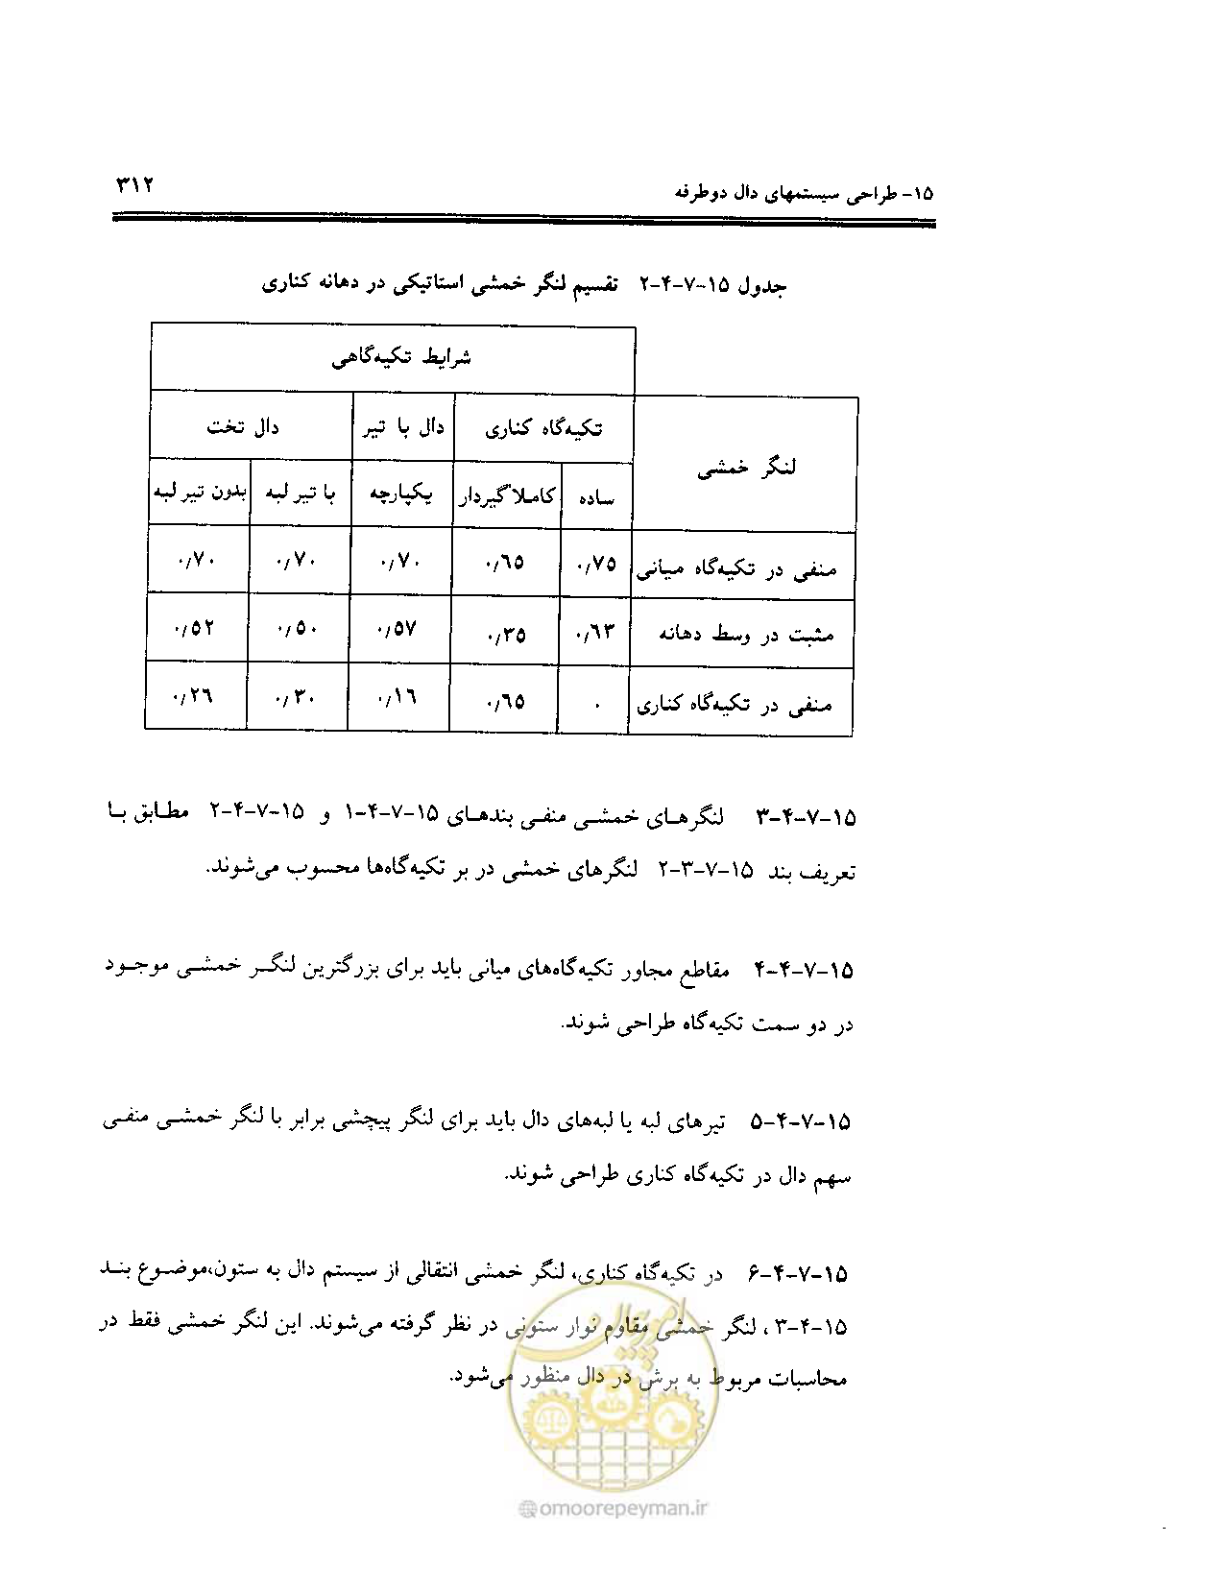 ۱۵- طراحی سیستمهای دال دوطرفه ۳۱۲
جدول ۱۵-۷-۴-۲ تقسیم لنگر خمشی استاتیکی در دهانه کناری
شرایط تکیه‌گاهی
لنگر خمشی تکیه‌گاه کناری دال با تیر دال تخت
ساده کاملاً گیردار یکپارچه با تیر لبه بدون تیر لبه
منفی در تکیه‌گاه میانی ۰/۷۵ ۰/۶۵ ۰/۷۰ ۰/۷۰ ۰/۷۰
مثبت در وسط دهانه ۰/۶۳ ۰/۳۵ ۰/۵۷ ۰/۵۰ ۰/۵۲
منفی در تکیه‌گاه کناری ۰ ۰/۶۵ ۰/۱۶ ۰/۳۰ ۰/۲۶
۱۵-۷-۴-۳ لنگرهای خمشی منفی بندهای ۱۵-۷-۴-۱ و ۱۵-۷-۴-۲ مطابق با
تعریف بند ۱۵-۷-۳-۲ لنگرهای خمشی در بر تکیه‌گاه‌ها محسوب می‌شوند.
۱۵-۷-۴-۴ مقاطع مجاور تکیه‌گاه‌های میانی باید برای بزرگترین لنگر خمشی موجود
در دو سمت تکیه‌گاه طراحی شوند.
۱۵-۷-۴-۵ تیرهای لبه یا لبه‌های دال باید برای لنگر پیچشی برابر با لنگر خمشی منفی
سهم دال در تکیه‌گاه کناری طراحی شوند.
۱۵-۷-۴-۶ در تکیه‌گاه کناری، لنگر خمشی انتقالی از سیستم دال به ستون،موضوع بند
۱۵-۴-۳ ، لنگر خمشی مقاوم نوار ستونی در نظر گرفته می‌شوند. این لنگر خمشی فقط در
محاسبات مربوط به برش در دال منظور می‌شود.
امور پیمان
@omoorepeyman.ir